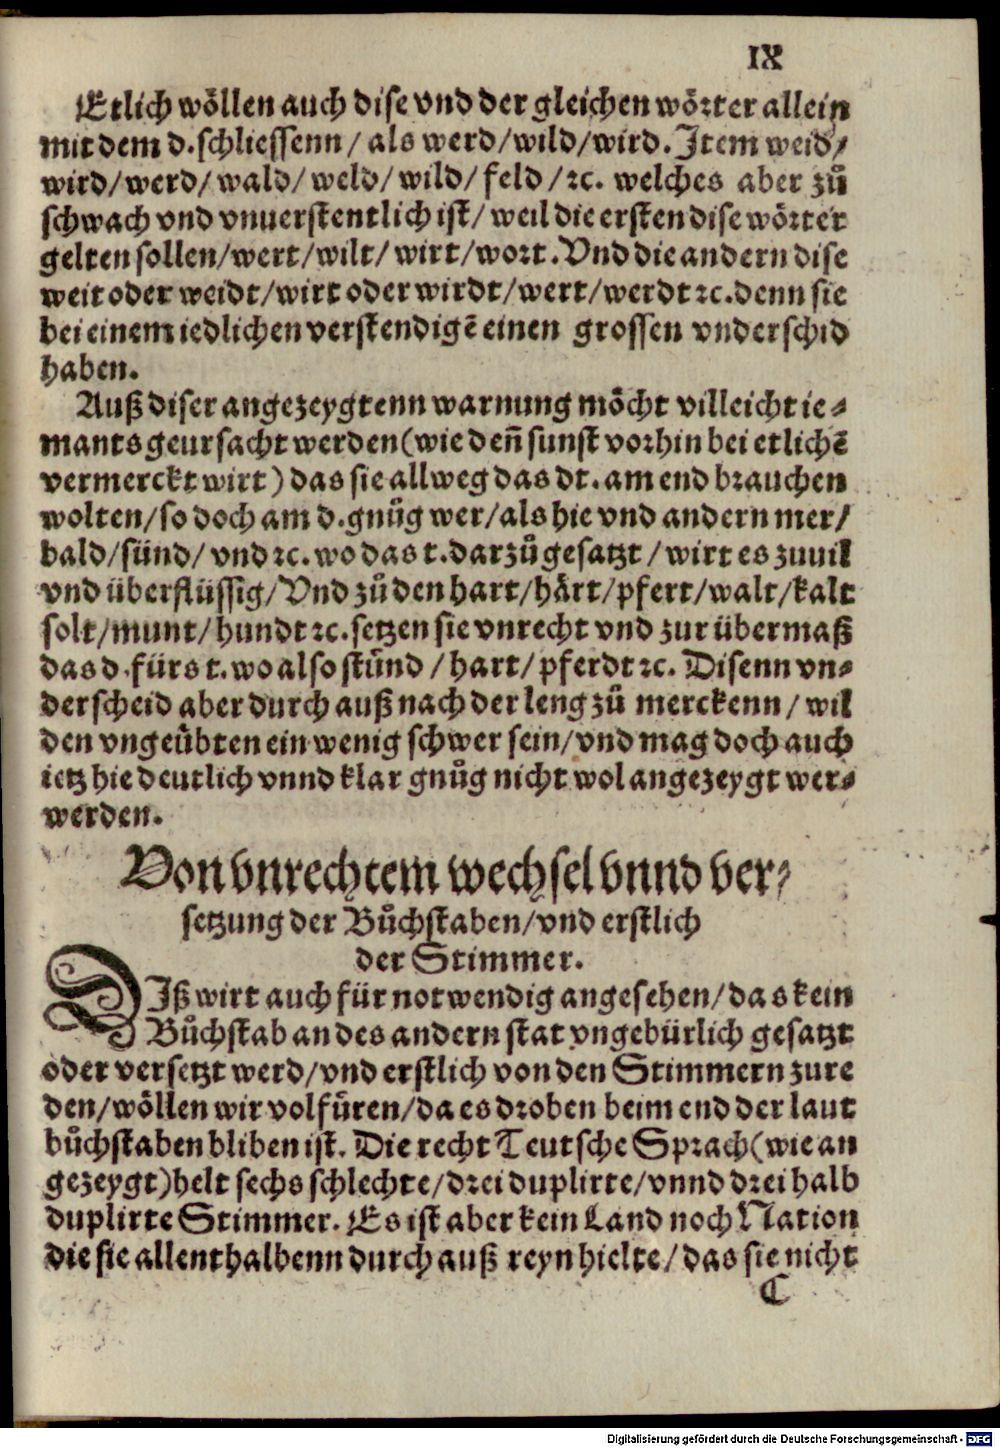 IX
Etlich wöllen auch dise vnd der gleichen wörter allein
mit dem d. schliessenn / als werd/wild/wird. Item weid/
wird/werd/wald/weld/wild/feld/ꝛc. welches aber zů
schwach vnd vnuerstentlich ist/ weil die ersten dise wörter
gelten sollen/wert/wilt/wirt/wort. Vnd die andern dise
weit oder weidt/wirt oder wirdt/wert/werdt ꝛc. denn sie
bei einem iedlichen verstendigē einen grossen vnderschid
haben.
Auß diser angezeygtenn warnung möcht villeicht ie⸗
mants geursacht werden (wie deñ sunst vorhin bei etlichē
vermerckt wirt) das sie allweg das dt. am end brauchen
wolten/so doch am d. gnůg wer/als hie vnd andern mer/
bald/sünd/ vnd ꝛc. wo das t. darzů gesatzt / wirt es zuuil
vnd überflüssig/ Vnd zů den hart/härt/pfert/walt/kalt
solt/munt/hundt ꝛc. setzen sie vnrecht vnd zur übermaß
das d. fürs t. wo also stůnd / hart/ pferdt ꝛc. Disenn vn⸗
derscheid aber durch auß nach der leng zů merckenn / wil
den vngeübten ein wenig schwer sein/vnd mag doch auch
ietz hie deutlich vnnd klar gnůg nicht wol angezeygt wer⸗
werden.
Von vnrechtem wechsel vnnd ver⸗
setzung der Bůchstaben/vnd erstlich
der Stimmer.
DIß wirt auch für notwendig angesehen/das kein
Bůchstab an des andern stat vngebürlich gesatzt
oder versetzt werd/vnd erstlich von den Stimmern zure
den/wöllen wir volfüren/da es droben beim end der laut
bůchstaben bliben ist. Die recht Teutsche Sprach (wie an
gezeygt) helt sechs schlechte/drei duplirte/vnnd drei halb
duplirte Stimmer. Es ist aber kein Land noch Nation
die sie allenthalbenn durch auß reyn hielte/das sie nicht
C
Digitalisierung gefördert durch die Deutsche Forschungsgemeinschaft - DFG